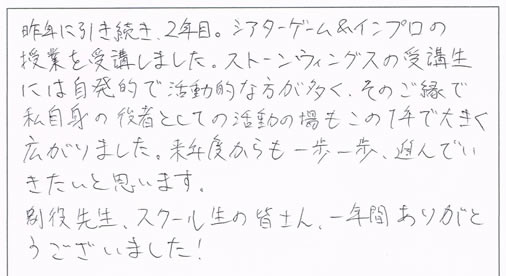 昨年に引き続き、2年目。シアターゲーム&インプロの
授業を受講しました。ストーンウィングスの受講生
には自発的で活動的な方が多く、そのご縁で
私自身の役者としての活動の場もこの1年で大きく
広がりました。来年度からも一歩一歩、進んでい
きたいと思います。
別役先生、スクール生の皆さん、一年間ありがと
うございました!